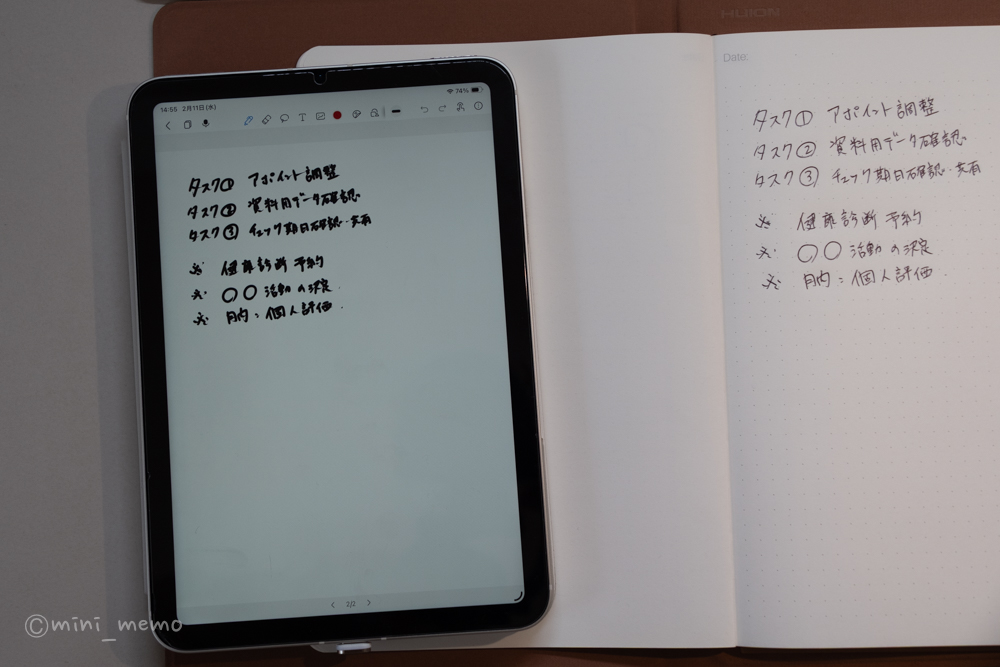 HUION
14:55 2月11日(水)
74%
タスク① アポイント調整
タスク② 資料用データ確認
タスク③ チェック期日確認・共有
※ 健康診断 予約
※ 〇〇 活動の決定.
※ 月内：個人評価.
2/2
Date:
タスク① アポイント調整
タスク② 資料用データ確認
タスク③ チェック期日確認・共有
※ 健康診断 予約
※ 〇〇 活動の決定
※ 月内：個人評価.
©mini_memo